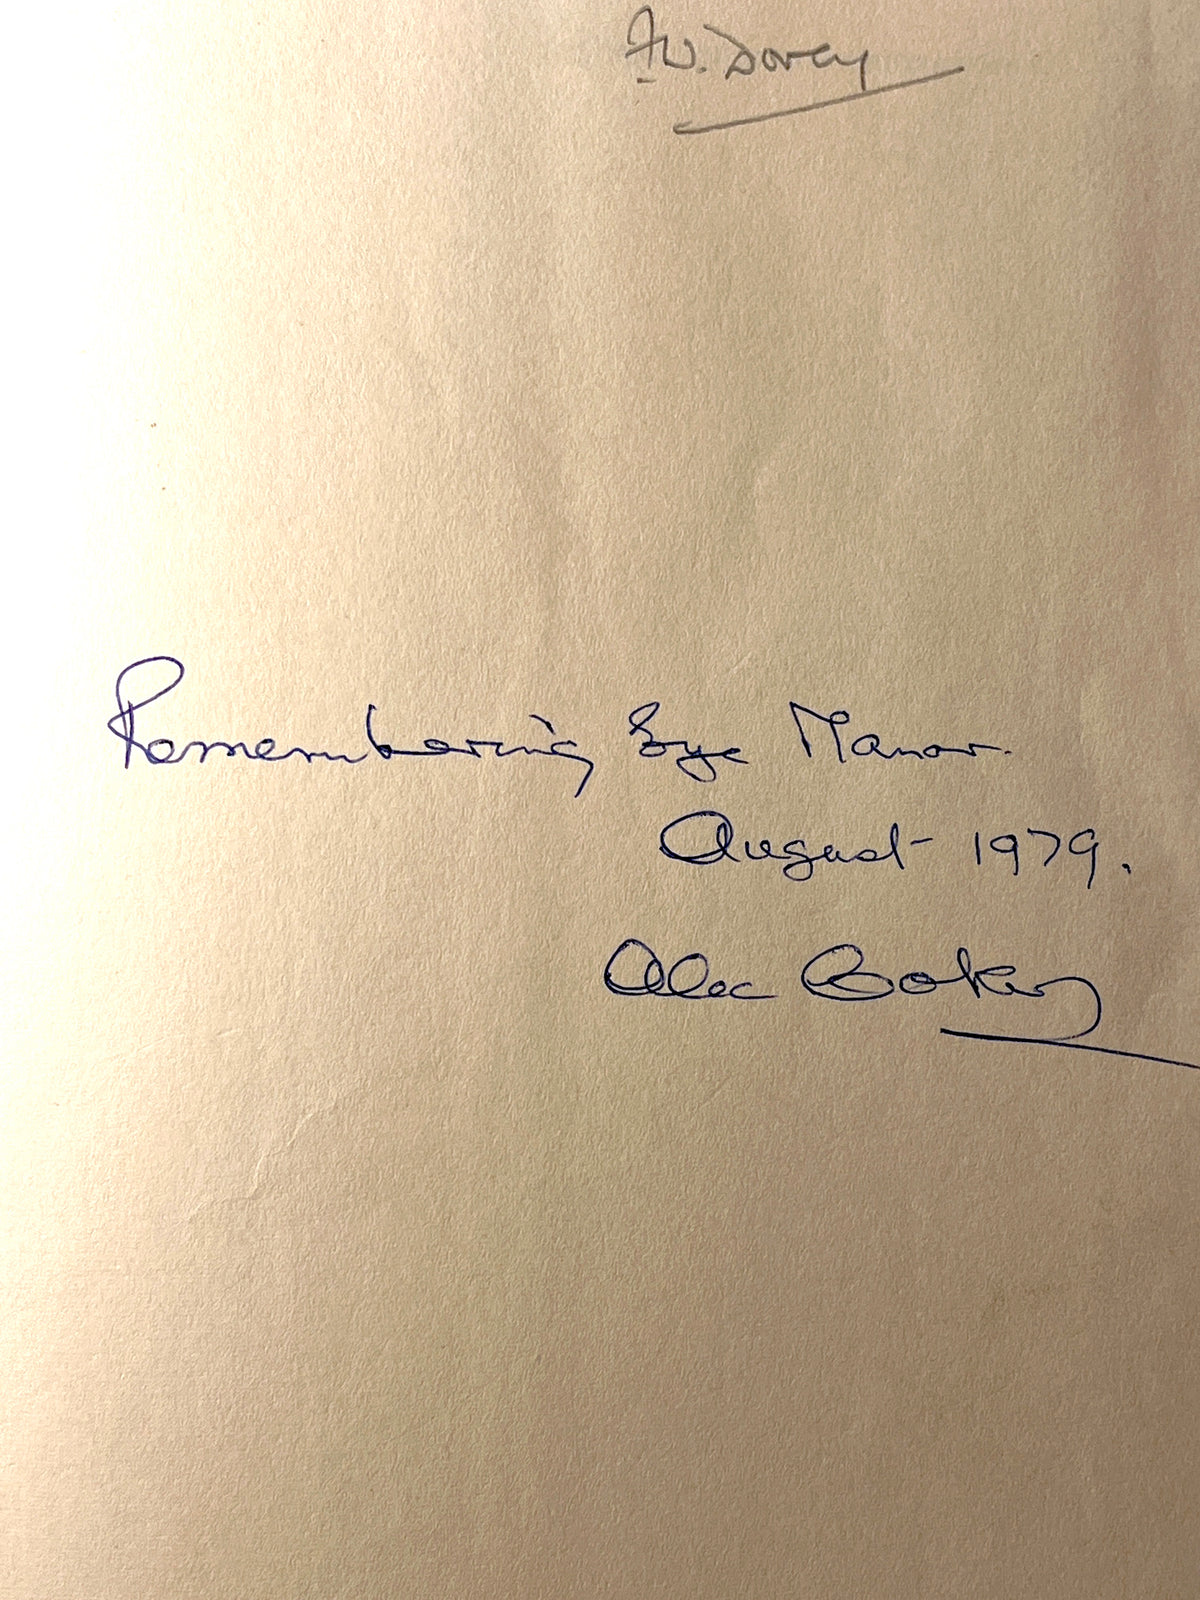 F.W. Dorey
Remembering Eye Manor.
August 1979.
Alec